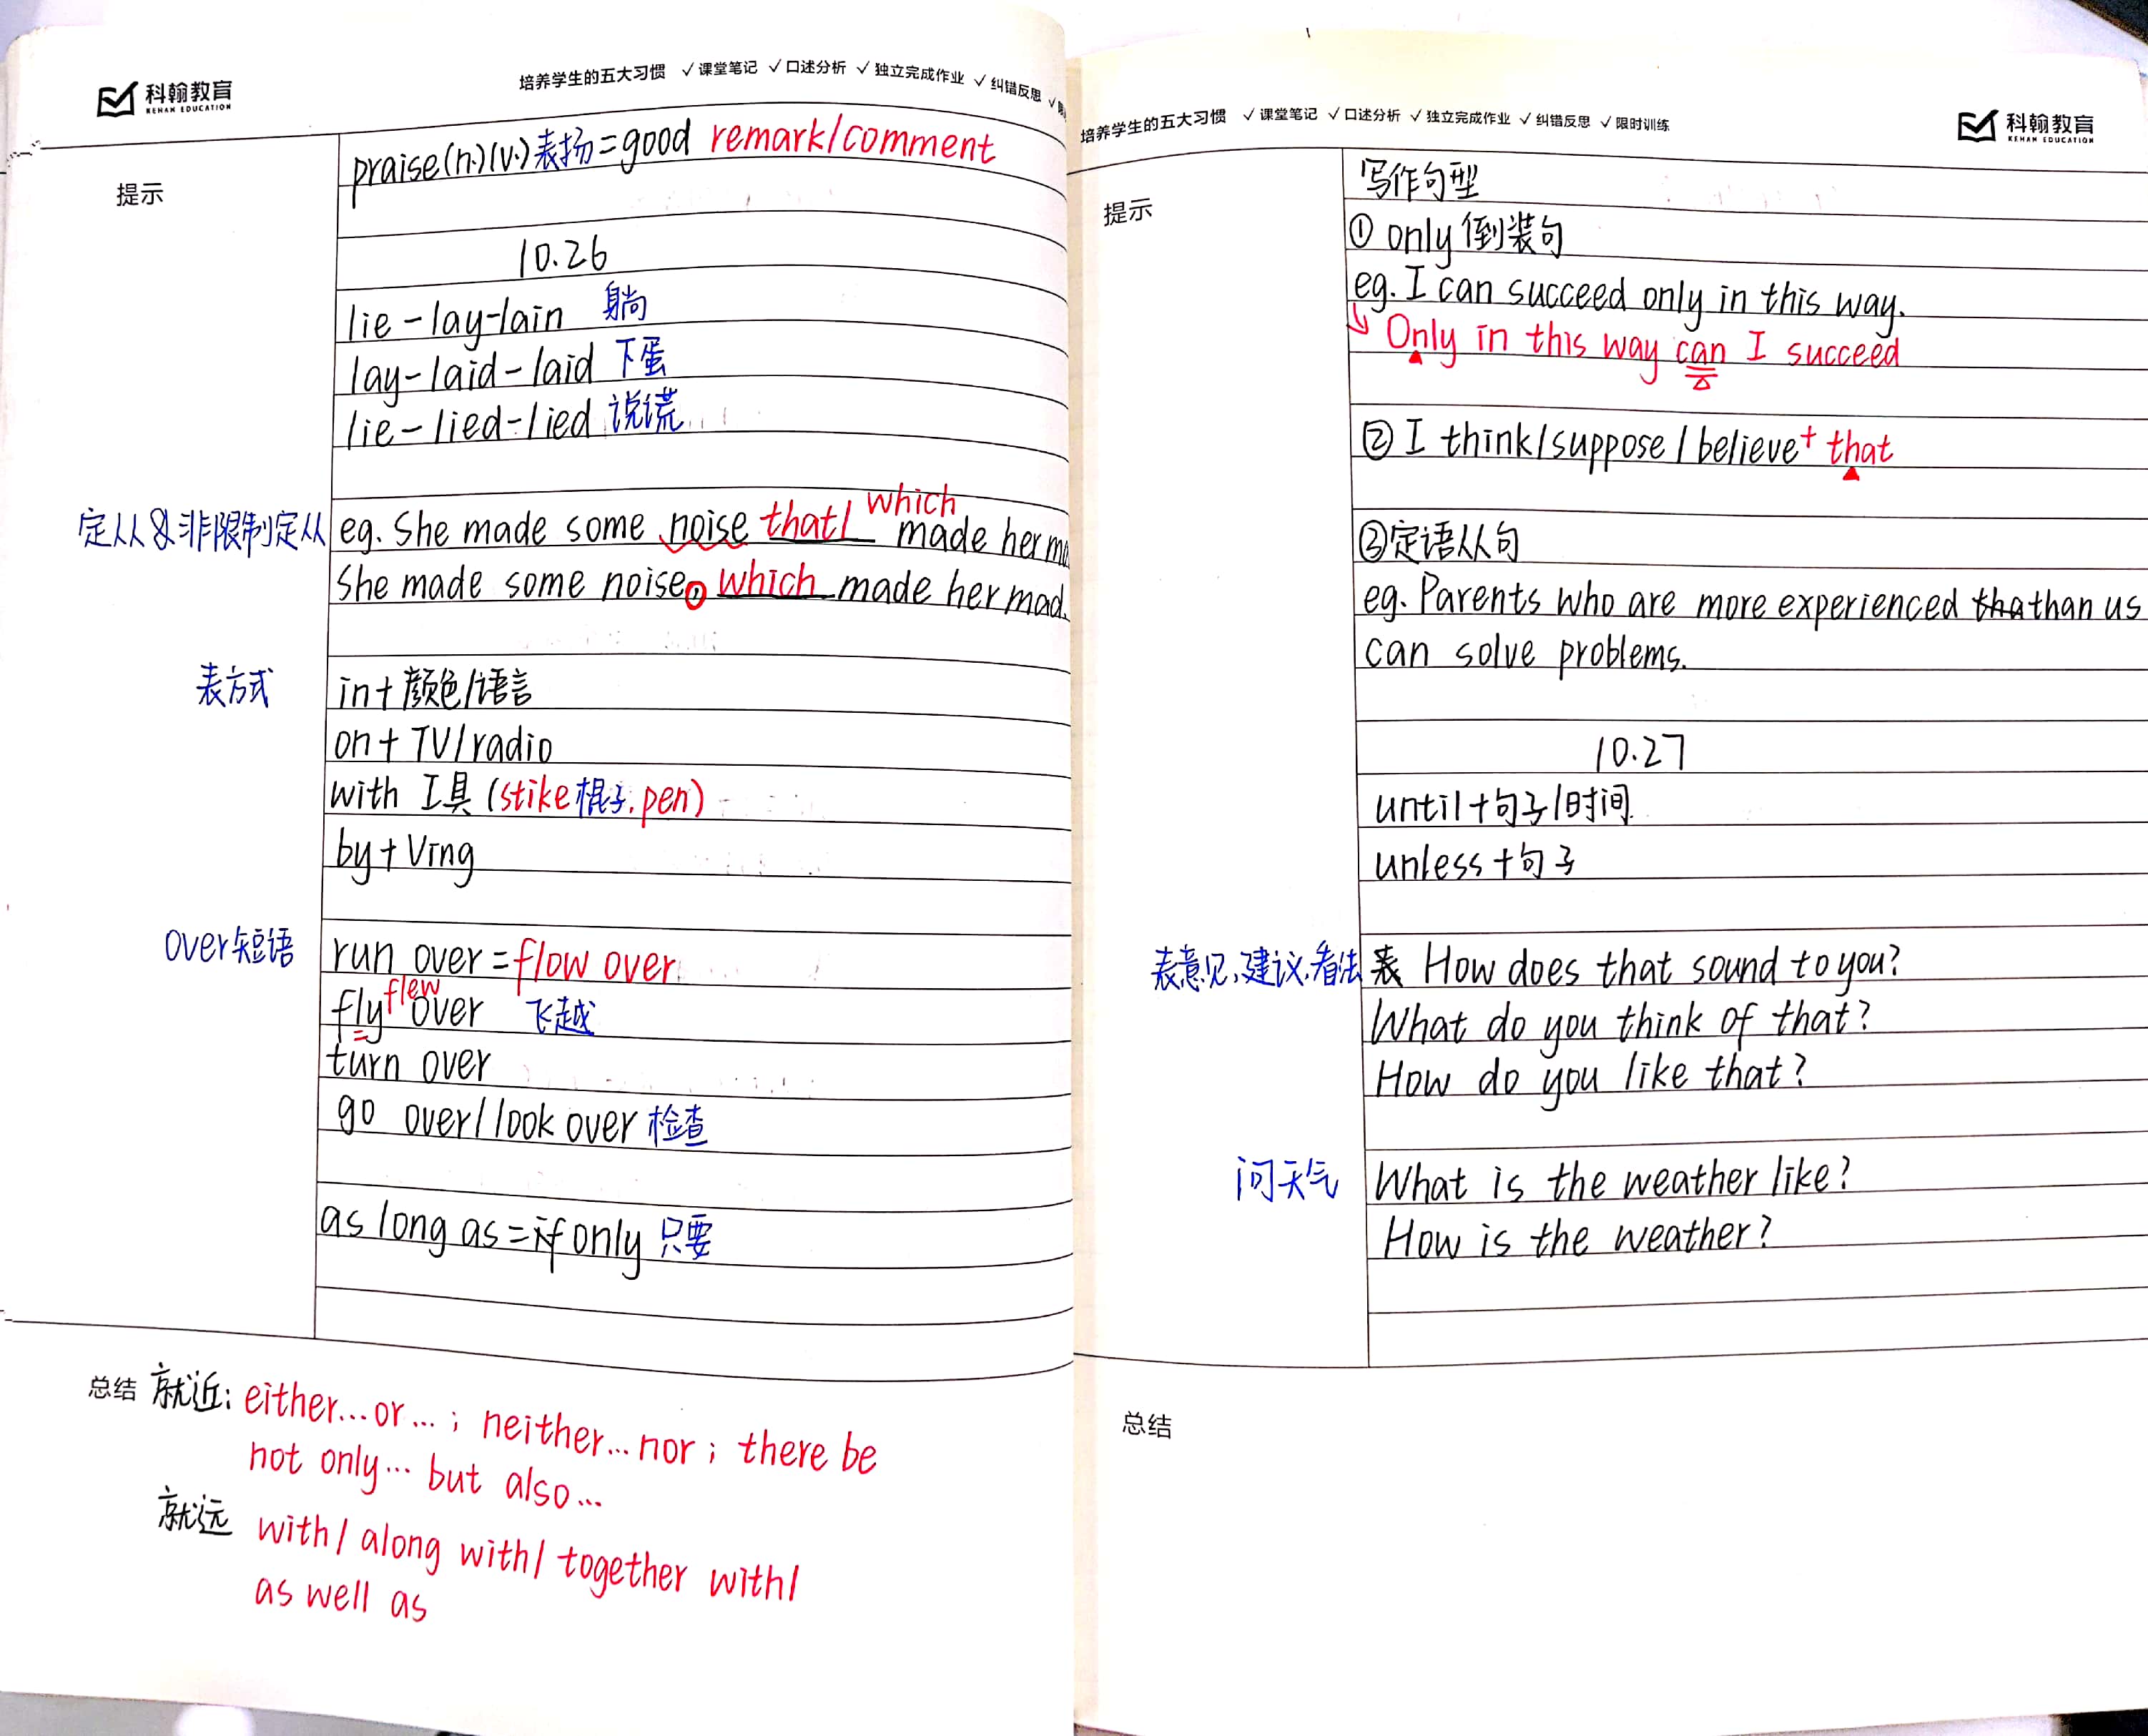 科翰教育
KEHAN EDUCATION
培养学生的五大习惯 ✓课堂笔记 ✓口述分析 ✓独立完成作业 ✓纠错反思 ✓
提示
praise(n.)(v.)表扬=good remark/comment
10.26
lie-lay-lain 躺
lay-laid-laid 下蛋
lie-lied-lied 说谎
定从&非限制定从 eg. She made some noise that/which made her
She made some noise, which made her mad.
表方式 in+颜色/语言
on+TV/radio
with 工具(stike棍子.pen)
by+Ving
over短语 run over=flow over
fly flew over 飞越
turn over
go over/look over 检查
as long as=if only 只要
总结 就近: either...or...; neither...nor; there be
not only... but also...
就远 with/along with/together with/
as well as
培养学生的五大习惯 ✓课堂笔记 ✓口述分析 ✓独立完成作业 ✓纠错反思 ✓限时训练
科翰教育
KEHAN EDUCATION
提示
写作句型
① only倒装句
eg. I can succeed only in this way.
↳ Only in this way can I succeed
② I think/suppose/believe+that
③定语从句
eg. Parents who are more experienced tha than us
can solve problems.
10.27
until+句子/时间
unless+句子
表意见,建议,看法 表 How does that sound to you?
What do you think of that?
How do you like that?
问天气 What is the weather like?
How is the weather?
总结